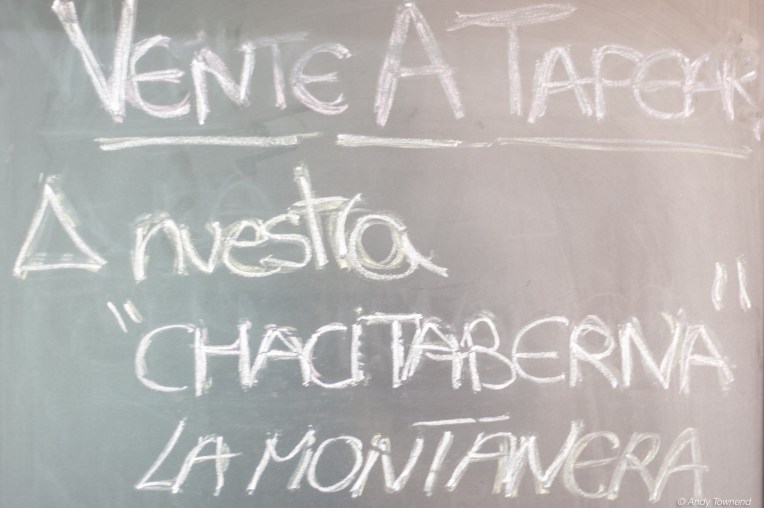 VENTE A TAPEAR
A nuestra
"CHACITABERNA"
LA MONTANERA
© Andy Townend